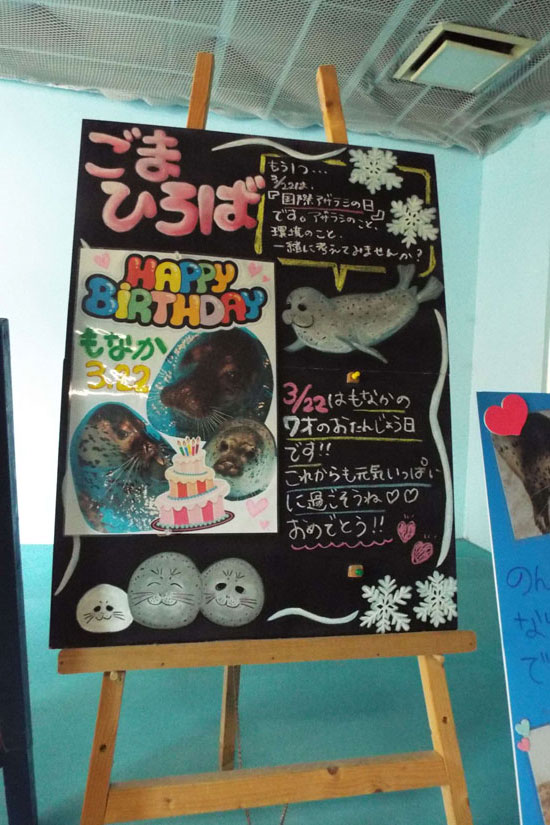 ごま
ひろば
もう1つ…
3/22は、
『国際アザラシの日』
です。アザラシのこと、
環境のこと、
一緒に考えてみませんか?
HAPPY
BiRTHDAY
もなか
3.22
3/22はもなかの
7才のおたんじょう日
です!!
これからも元気いっぱい
に過ごそうね♡♡
おめでとう!!
のん
な
で